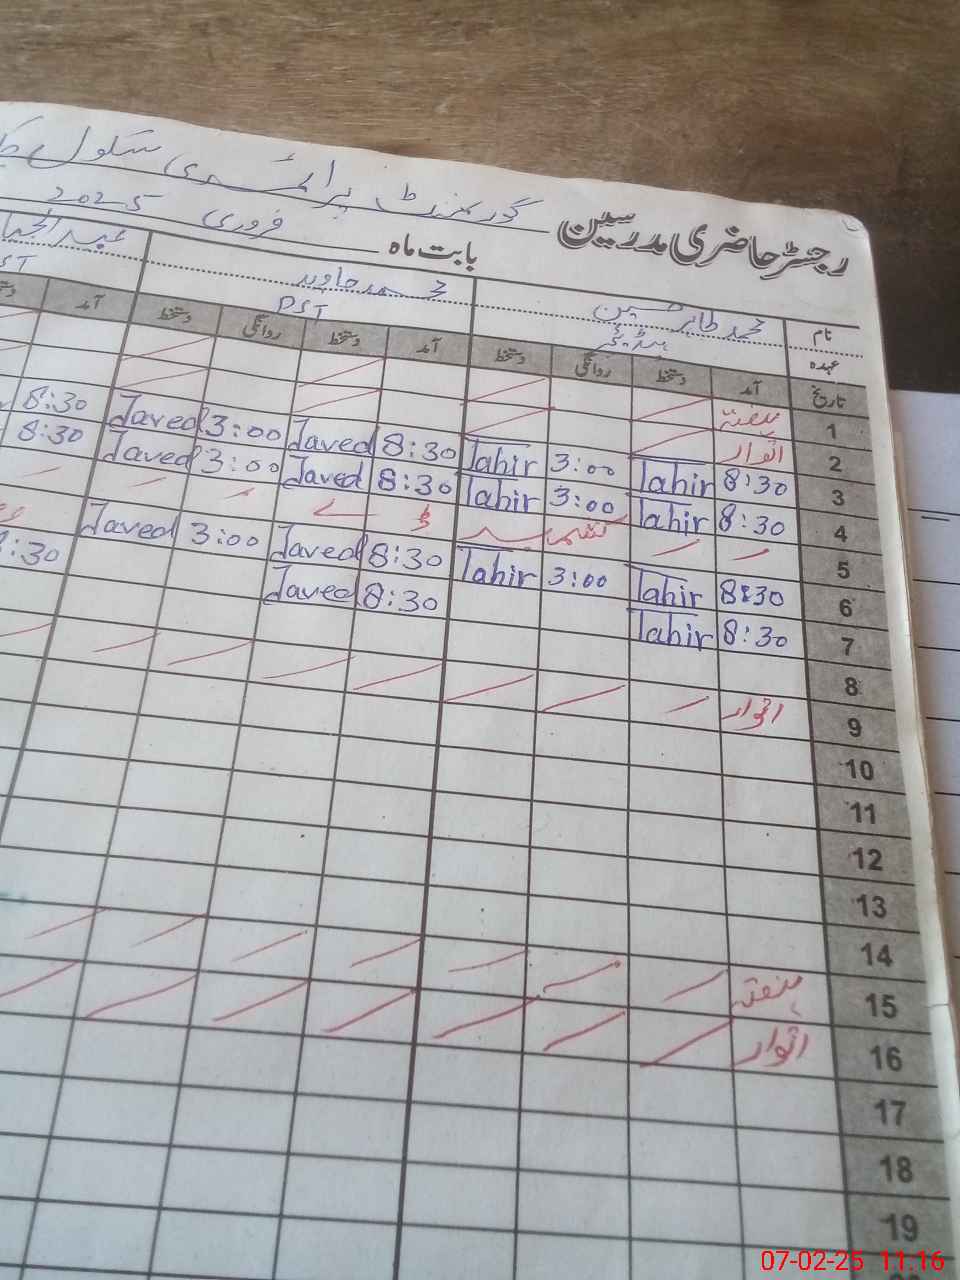 گورنمنٹ پرائمری سکول
رجسٹر حاضری مدرسین
بابت ماہ فروری 2025
نام محمد طاہر حسین محمد جاوید
عہدہ ہیڈ ٹیچر PST
تاریخ آمد دستخط روانگی دستخط آمد دستخط روانگی دستخط آمد
1 ہفتہ
2 اتوار
3 8:30 Tahir 3:00 Tahir 8:30 Javed 3:00 Javed 8:30
4 8:30 Tahir 3:00 Tahir 8:30 Javed 3:00 Javed 8:30
5 کشمیر ڈے
6 8:30 Tahir 3:00 Tahir 8:30 Javed 3:00 Javed
7 8:30 Tahir 8:30 Javed :30
8
9 اتوار
10
11
12
13
14
15 ہفتہ
16 اتوار
17
18
19
07-02-25 11:16